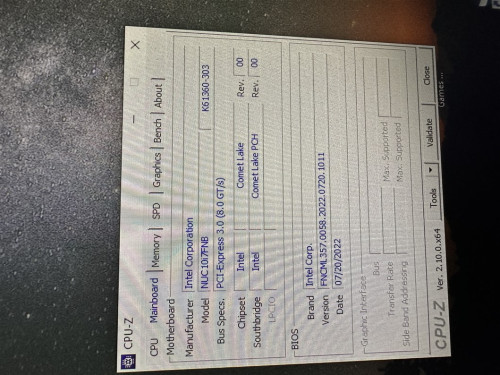 CPU-Z
CPU Mainboard Memory SPD Graphics Bench About
Motherboard
Manufacturer Intel Corporation
Model NUC10i7FNB K61360-303
Bus Specs. PCI-Express 3.0 (8.0 GT/s)
Chipset Intel Comet Lake Rev. 00
Southbridge Intel Comet Lake PCH Rev. 00
LPCIO
BIOS
Brand Intel Corp.
Version FNCML357.0058.2022.0720.1011
Date 07/20/2022
Graphic Interface
Bus
Transfer Rate Max. Supported
Side Band Addressing Max. Supported
CPU-Z Ver. 2.10.0.x64 Tools Validate Close
Games ...